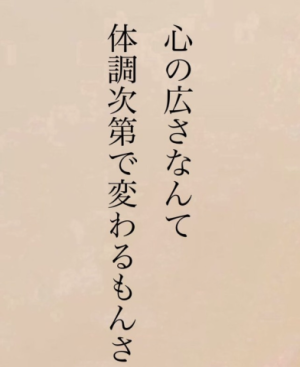 心の広さなんて
体調次第で変わるもんさ